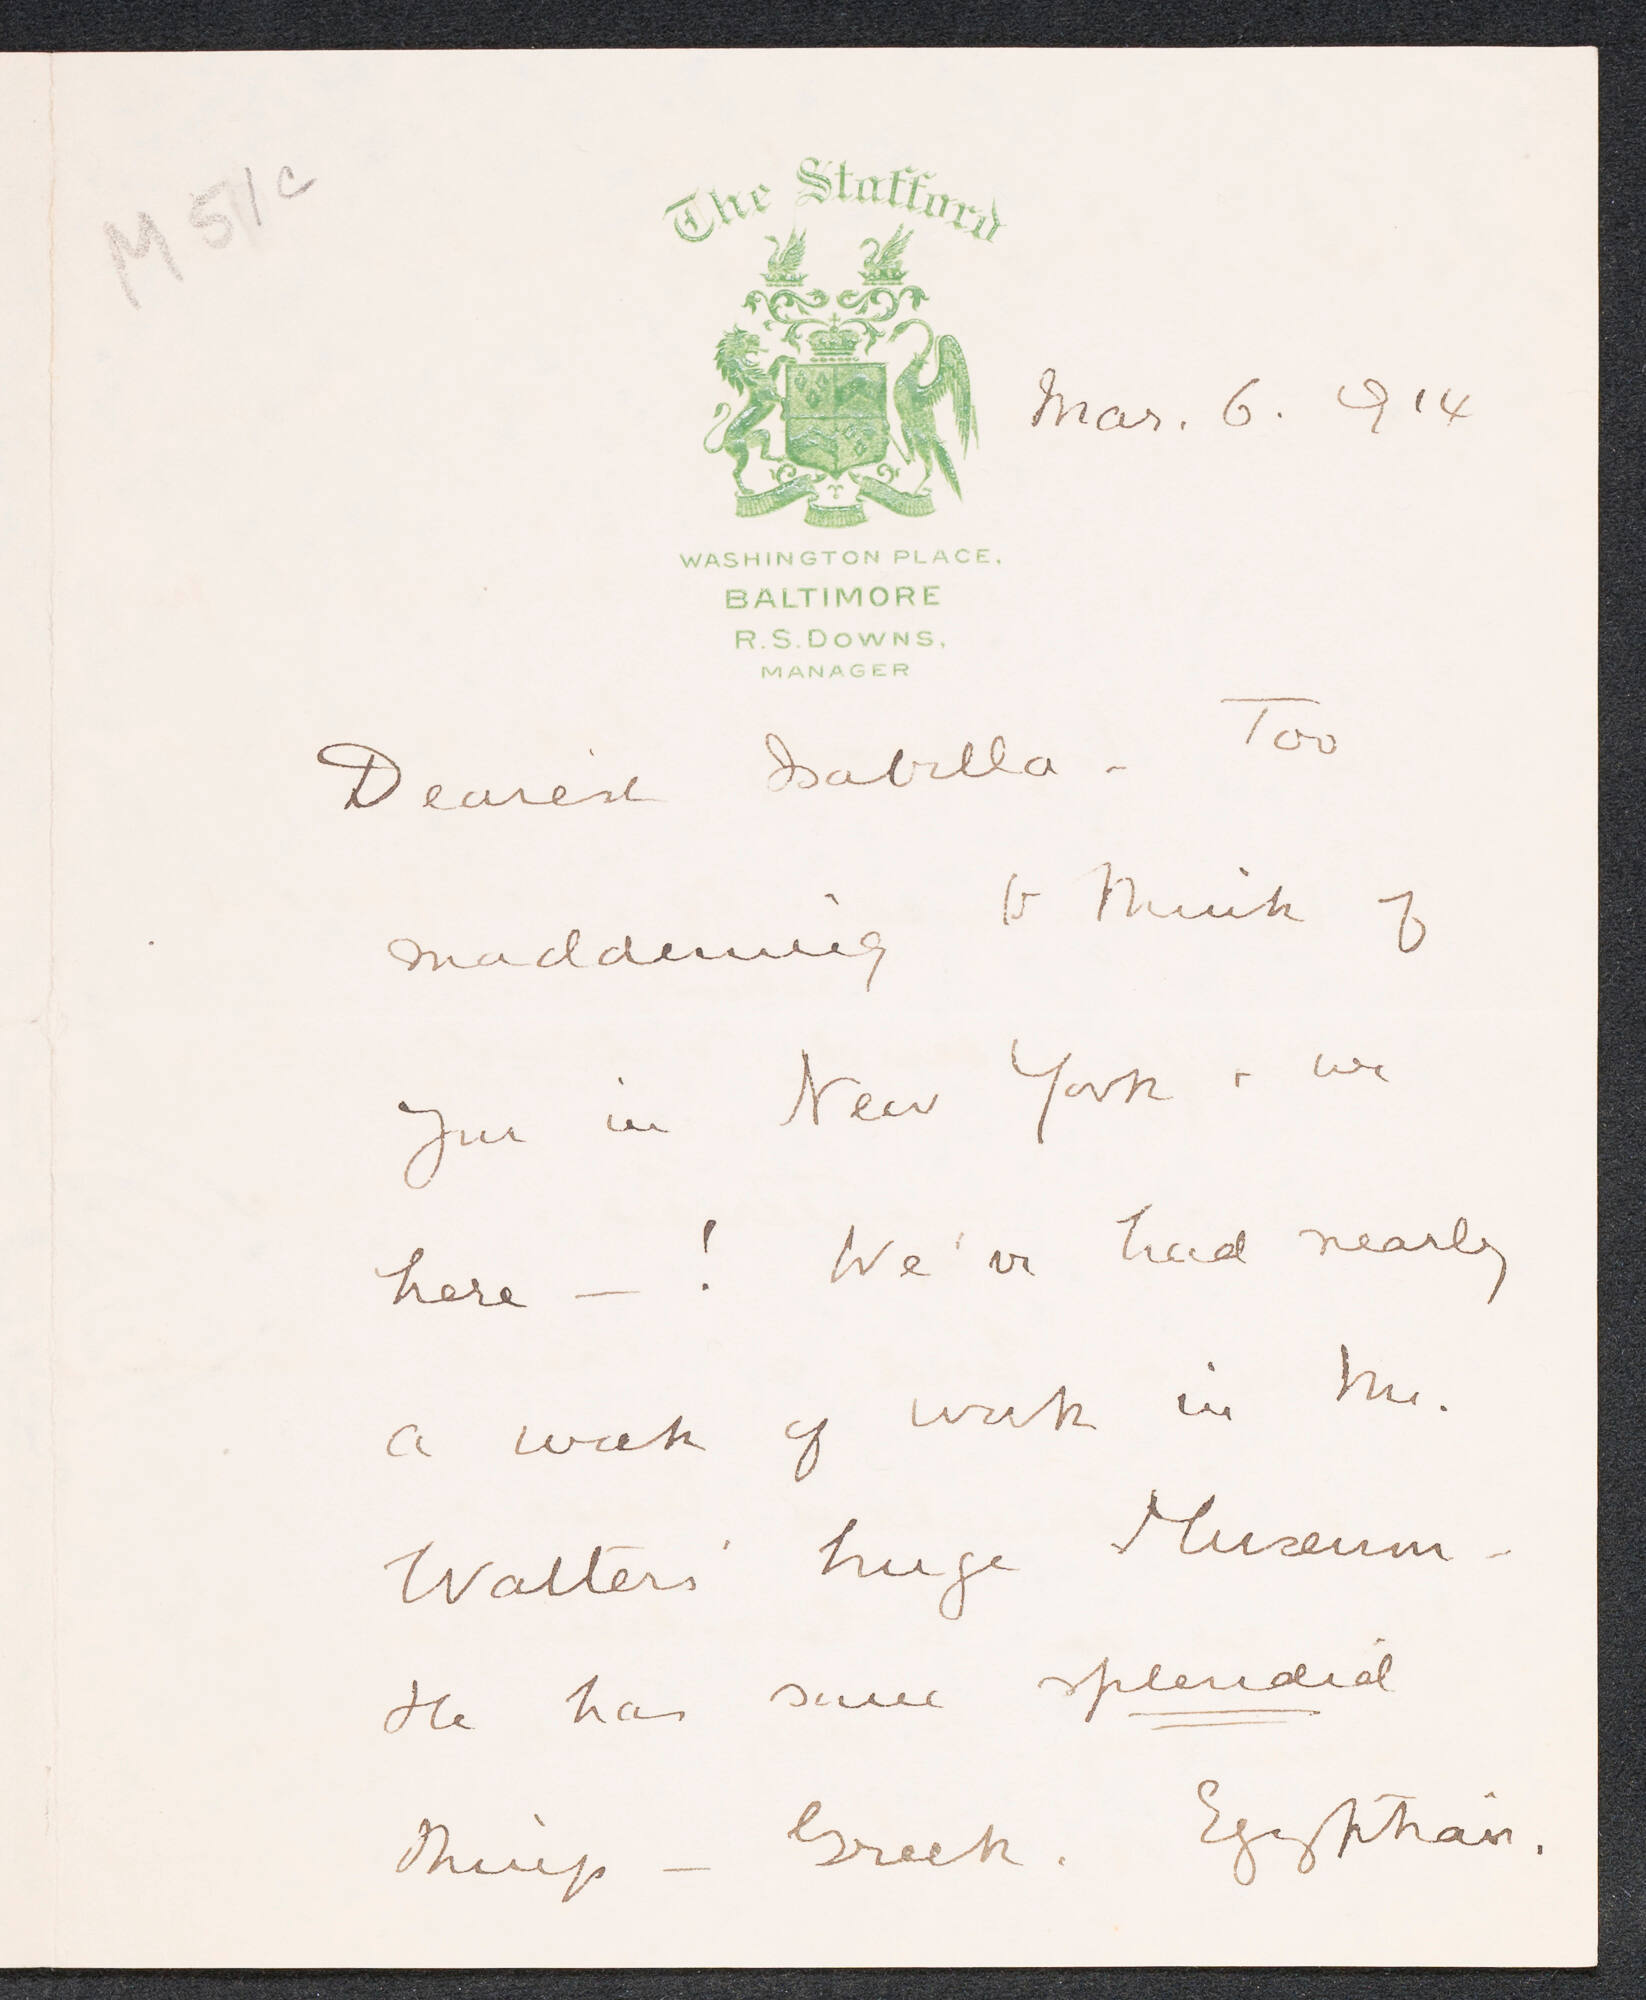 M 51c
The Stafford
WASHINGTON PLACE,
BALTIMORE
R.S. DOWNS,
MANAGER
Mar. 6. 1914
Dearest Isabella - Too
maddening to think of
you in New York + we
here - ! We've had nearly
a week of work in Mr.
Walters' huge Museum -
He has some splendid
things - Greek. Egyptian.